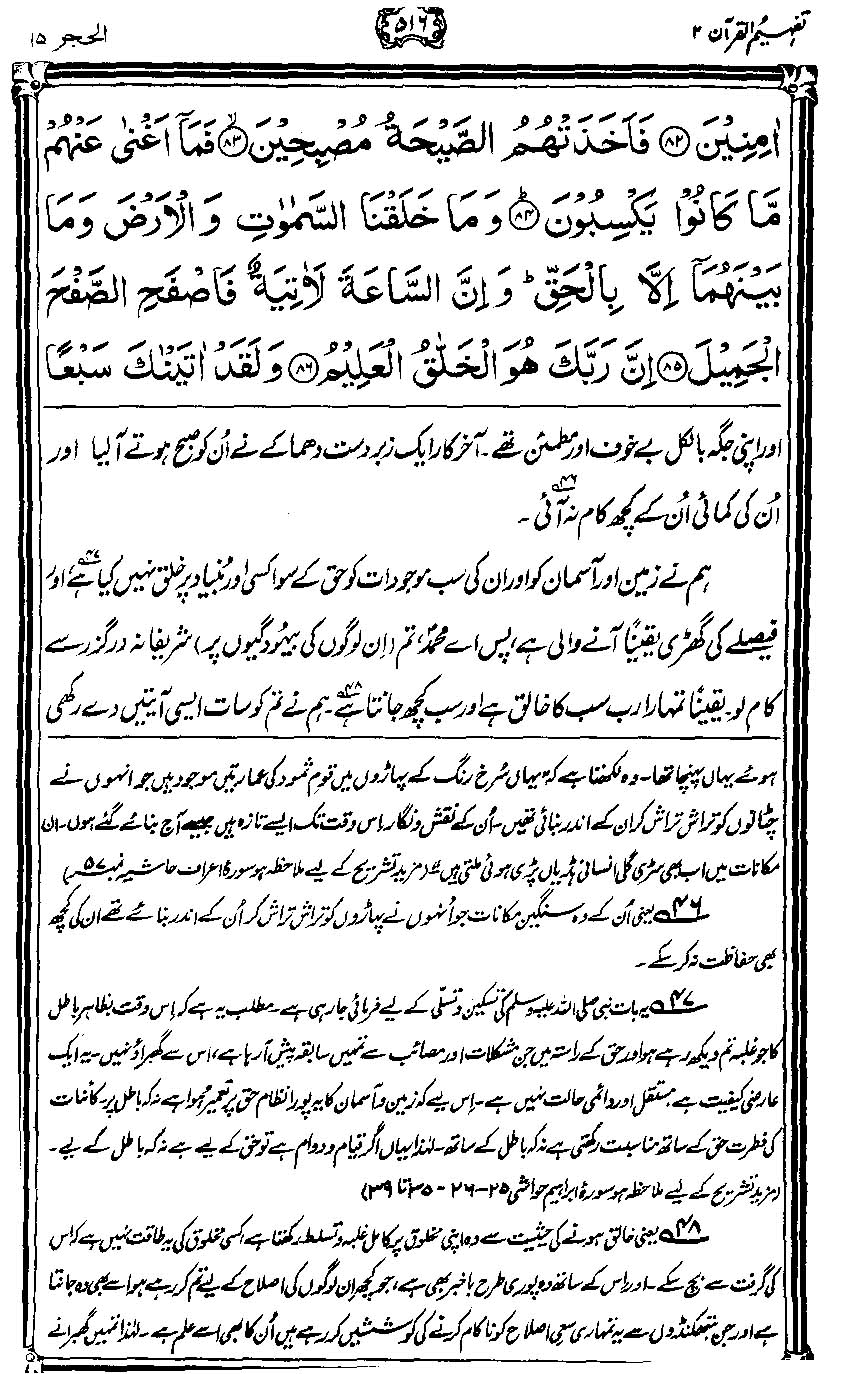 تفہیم القرآن ۲
۵۱۶
الحجر ۱۵
اٰمِنِيْنَ ﴿۸۲﴾ فَاَخَذَتْهُمُ الصَّيْحَةُ مُصْبِحِيْنَ ﴿۸۳﴾ فَمَاۤ اَغْنٰى عَنْهُمْ
مَّا كَانُوْا يَكْسِبُوْنَ ﴿۸۴﴾ وَمَا خَلَقْنَا السَّمٰوٰتِ وَالْاَرْضَ وَمَا
بَيْنَهُمَاۤ اِلَّا بِالْحَقِّ ؕ وَاِنَّ السَّاعَةَ لَاٰتِيَةٌ فَاصْفَحِ الصَّفْحَ
الْجَمِيْلَ ﴿۸۵﴾ اِنَّ رَبَّكَ هُوَ الْخَلّٰقُ الْعَلِيْمُ ﴿۸۶﴾ وَلَقَدْ اٰتَيْنٰكَ سَبْعًا
اور اپنی جگہ بالکل بے خوف اور مطمئن تھے۔ آخر کار ایک زبردست دھماکے نے اُن کو صبح ہوتے آ لیا اور
اُن کی کمائی اُن کے کچھ کام نہ آئی۔ ۴۶
ہم نے زمین اور آسمان کو اور ان کی سب موجودات کو حق کے سوا کسی اور بُنیاد پر خلق نہیں کیا ہے ۴۷، اور
فیصلے کی گھڑی یقیناً آنے والی ہے، پس اے محمدؐ، تم (اِن لوگوں کی بیہُودگیوں پر) شریفانہ درگزر سے
کام لو۔ یقیناً تمہارا رب سب کا خالق ہے اور سب کچھ جانتا ہے ۴۸۔ ہم نے تم کو سات ایسی آیتیں دے رکھی
ہوئے یہاں پہنچا تھا۔ وہ لکھتا ہے کہ ”یہاں سُرخ رنگ کے پہاڑوں میں قومِ ثمود کی عمارتیں موجود ہیں جو انہوں نے
چٹانوں کو تراش تراش کر ان کے اندر بنائی تھیں۔ اُن کے نقش و نگار اِس وقت تک ایسے تازہ ہیں جیسے آج بنائے گئے ہوں۔ ان
مکانات میں اب بھی سڑی گلی انسانی ہڈیاں پڑی ہوئی ملتی ہیں“ (مزید تشریح کے لیے ملاحظہ ہو سورۂ اعراف حاشیہ نمبر ۵۷)
۴۶ یعنی اُن کے وہ سنگین مکانات جو اُنہوں نے پہاڑوں کو تراش تراش کر اُن کے اندر بنائے تھے ان کی کچھ
بھی حفاظت نہ کر سکے۔
۴۷ یہ بات نبی صلی اللہ علیہ وسلم کی تسکین و تسلّی کے لیے فرمائی جا رہی ہے۔ مطلب یہ ہے کہ اِس وقت بظاہر باطل
کا جو غلبہ تم دیکھ رہے ہو اور حق کے راستہ میں جن مشکلات اور مصائب سے تمہیں سابقہ پیش آ رہا ہے، اس سے گھبراؤ نہیں۔ یہ ایک
عارضی کیفیت ہے، مستقل اور دائمی حالت نہیں ہے۔ اِس لیے کہ زمین و آسمان کا یہ پورا نظام حق پر تعمیر ہُوا ہے نہ کہ باطل پر۔ کائنات
کی فطرت حق کے ساتھ مناسبت رکھتی ہے نہ کہ باطل کے ساتھ۔ لہٰذا یہاں اگر قیام و دوام ہے تو حق کے لیے ہے نہ کہ باطل کے لیے۔
(مزید تشریح کے لیے ملاحظہ ہو سورۂ ابراہیم حواشی ۲۵-۲۶-۳۵ تا ۳۹)
۴۸ یعنی خالق ہونے کی حیثیت سے وہ اپنی مخلوق پر کامل غلبہ و تسلط رکھتا ہے، کسی مخلوق کی یہ طاقت نہیں ہے کہ اس
کی گرفت سے بچ سکے۔ اور اس کے ساتھ وہ پوری طرح باخبر بھی ہے، جو کچھ ان لوگوں کی اصلاح کے لیے تم کر رہے ہو اسے بھی وہ جانتا
ہے اور جن ہتھکنڈوں سے یہ تمہاری سعیِ اصلاح کو ناکام کرنے کی کوششیں کر رہے ہیں اُن کا بھی اسے علم ہے۔ لہٰذا تمہیں گھبرانے